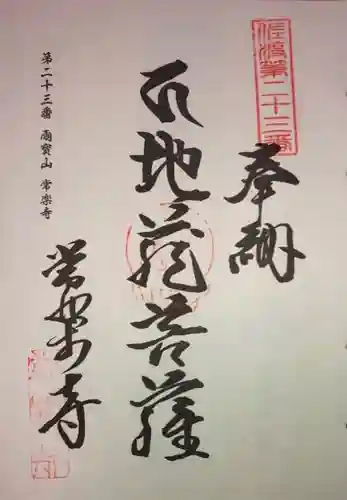 佐渡第二十三番
奉納
地蔵菩薩
常楽寺
第二十三番 雨寳山 常楽寺